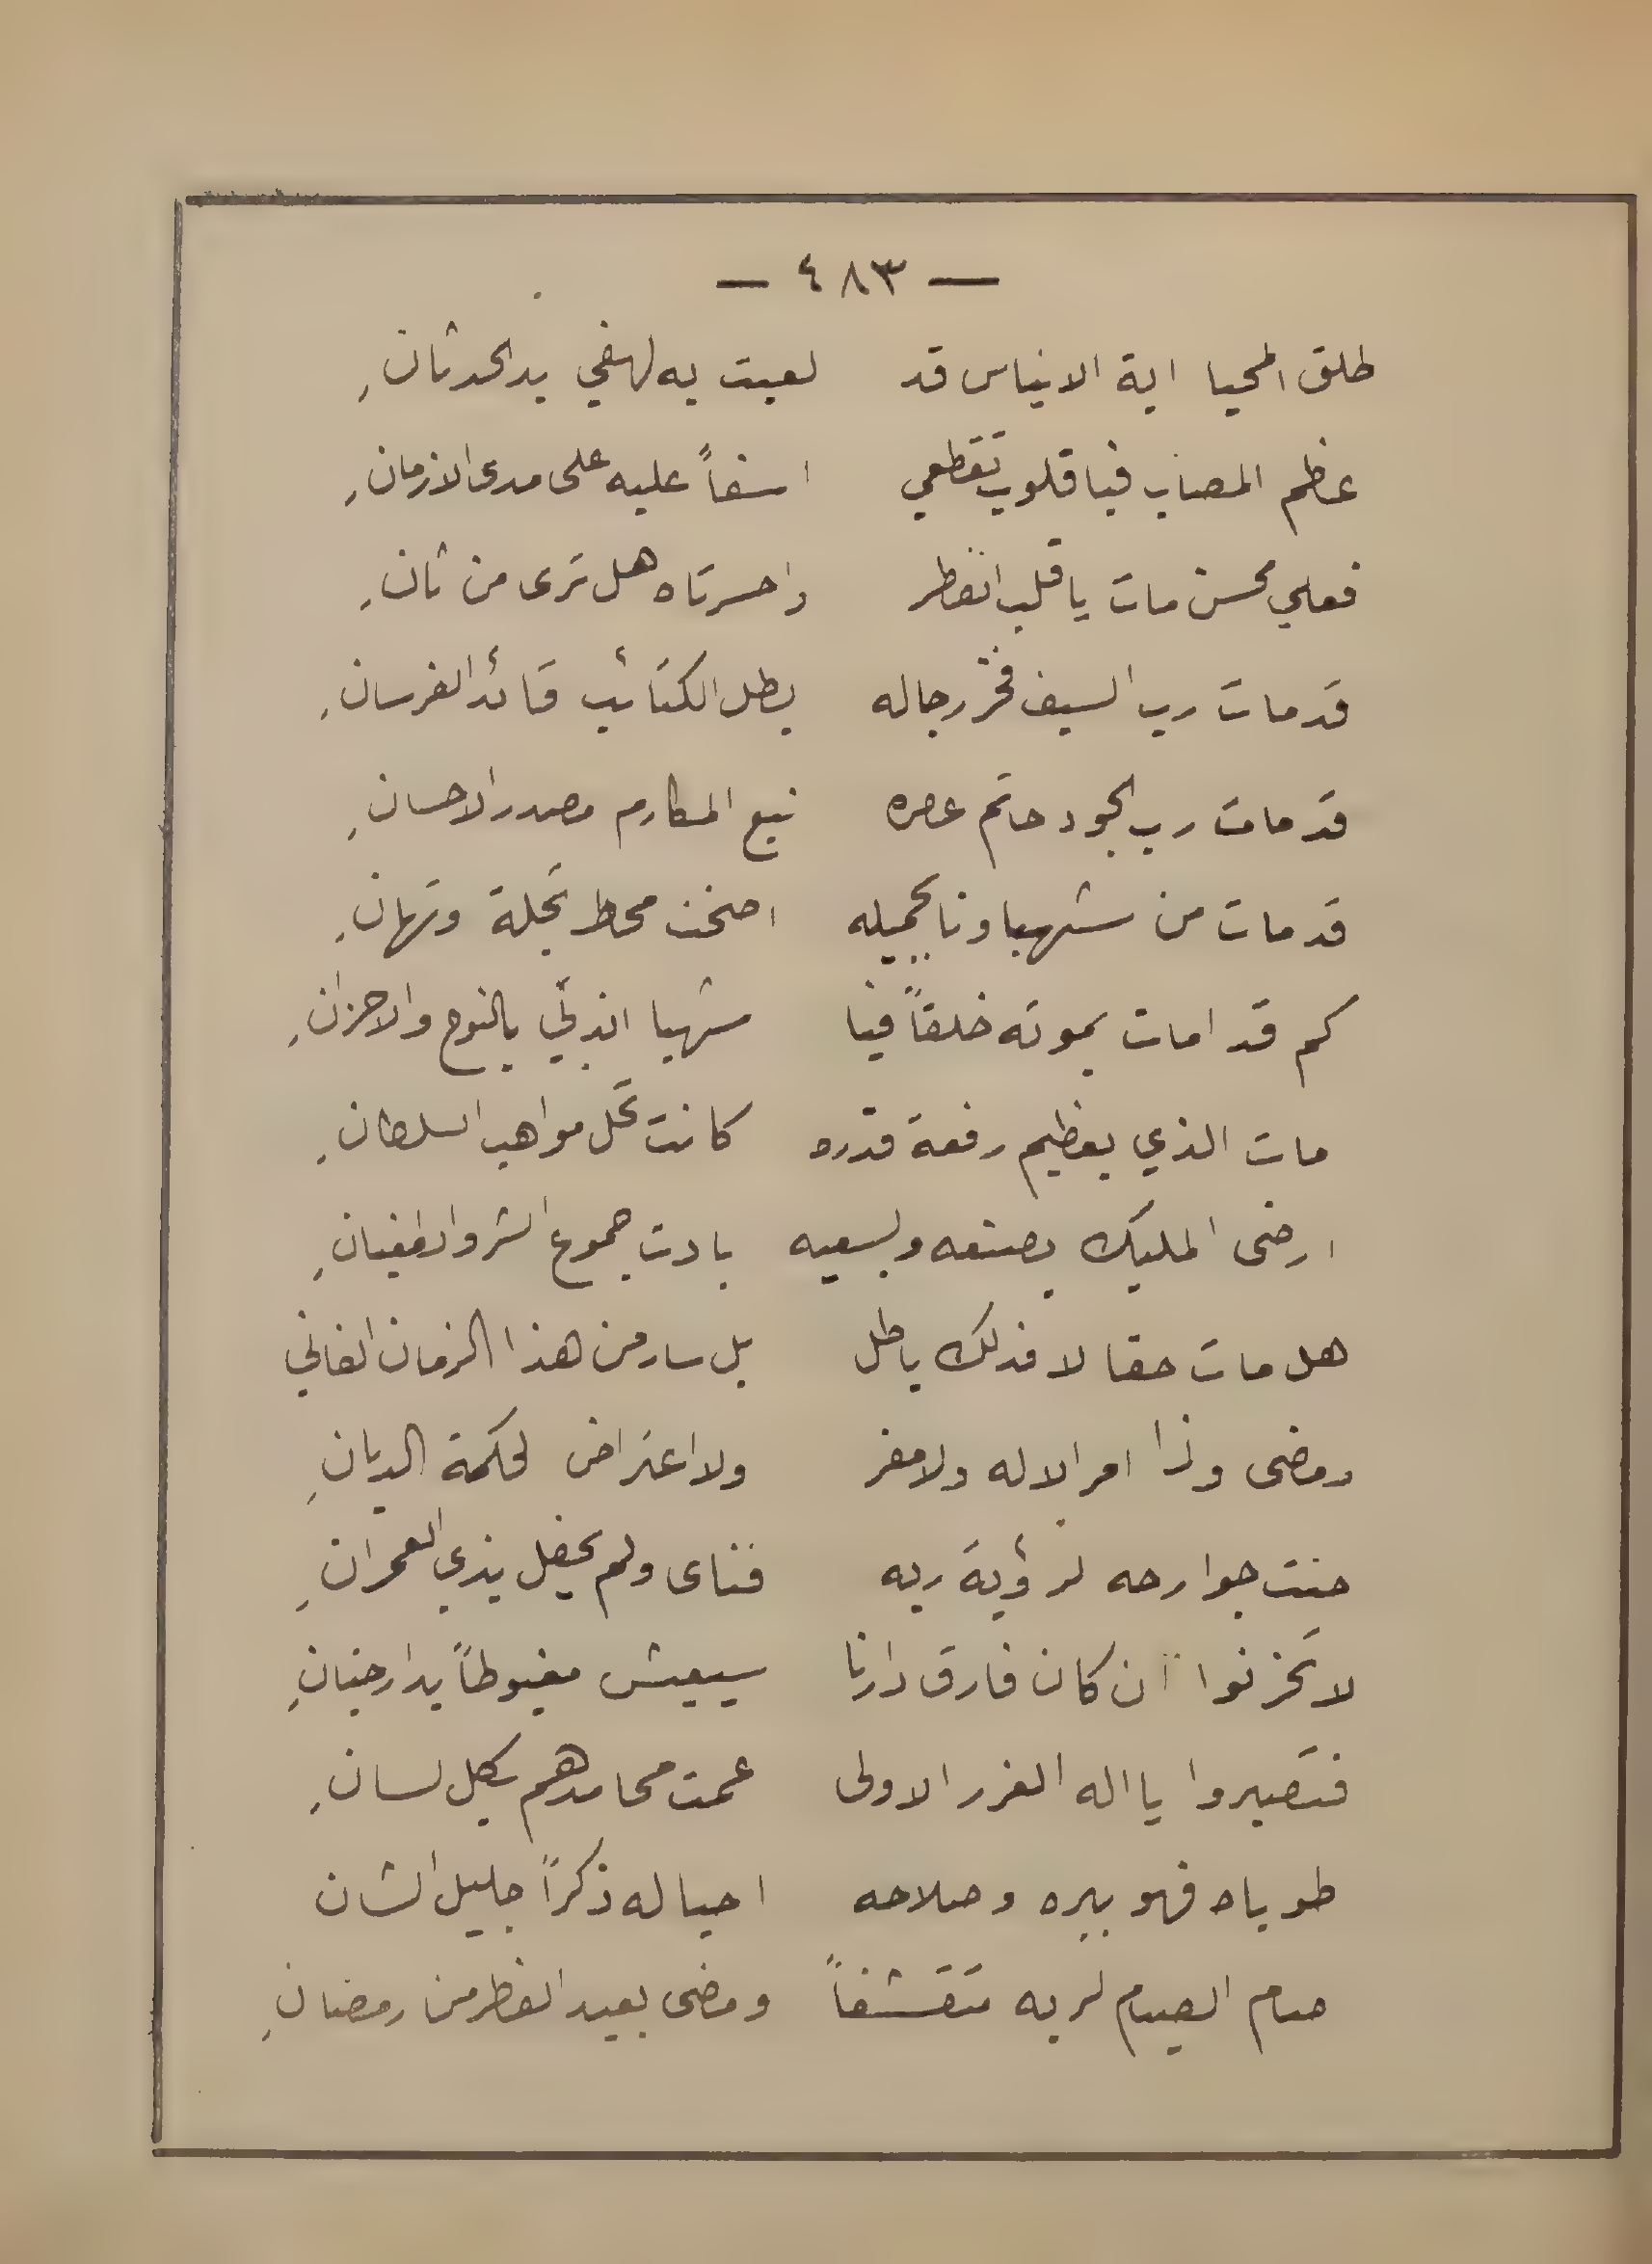 — ٤٨٣ —
طلق المحيا اية الايناس قد لعبت به لهفي يد الحدثانِ
عظم المصاب فيا قلوب تقطعي اسفاً عليه على مدى الازمانِ
فعلي محسن مات يا قلب انفطر واحسرتاه هل ترى من ثانِ
قد مات رب السيف فخر رجاله بطل الكتائب قائد الفرسانِ
قد مات رب الجود حاتم عصره نبع المكارم مصدر الاحسانِ
قد مات من شهباونا بجميله اضحت محط تجلة وتهانِ
كم قد امات بموته خلقاً فيا شهبا اندبي بالنوح والاحزانِ
مات الذي بعظيم رفعة قدره كانت تحل مواهب السلطانِ
ارضى المليك بصنعه وبسعيه بادت جموع الشر والطغيانِ
هل مات حقا لا فذلك باطل بل سار من هذا الزمان الفاني
ومضى وذا امر الاله ولا مفر ولا اعتراض لحكمة الديانِ
حنت جوارحه لرؤية ربه فنأى ولم يحفل بذي العمرانِ
لا تحزنوا ان كان فارق دارنا سيعيش مغبوطاً بدار جنانِ
فتصبروا يا اله الغرر الاولى عمت محامدهم بكل لسانِ
طوباه فهو ببره وصلاحه احيا له ذكراً جليل الشان
صام الصيام لربه متقشفاً ومضى بعيد الفطر من رمضانِ